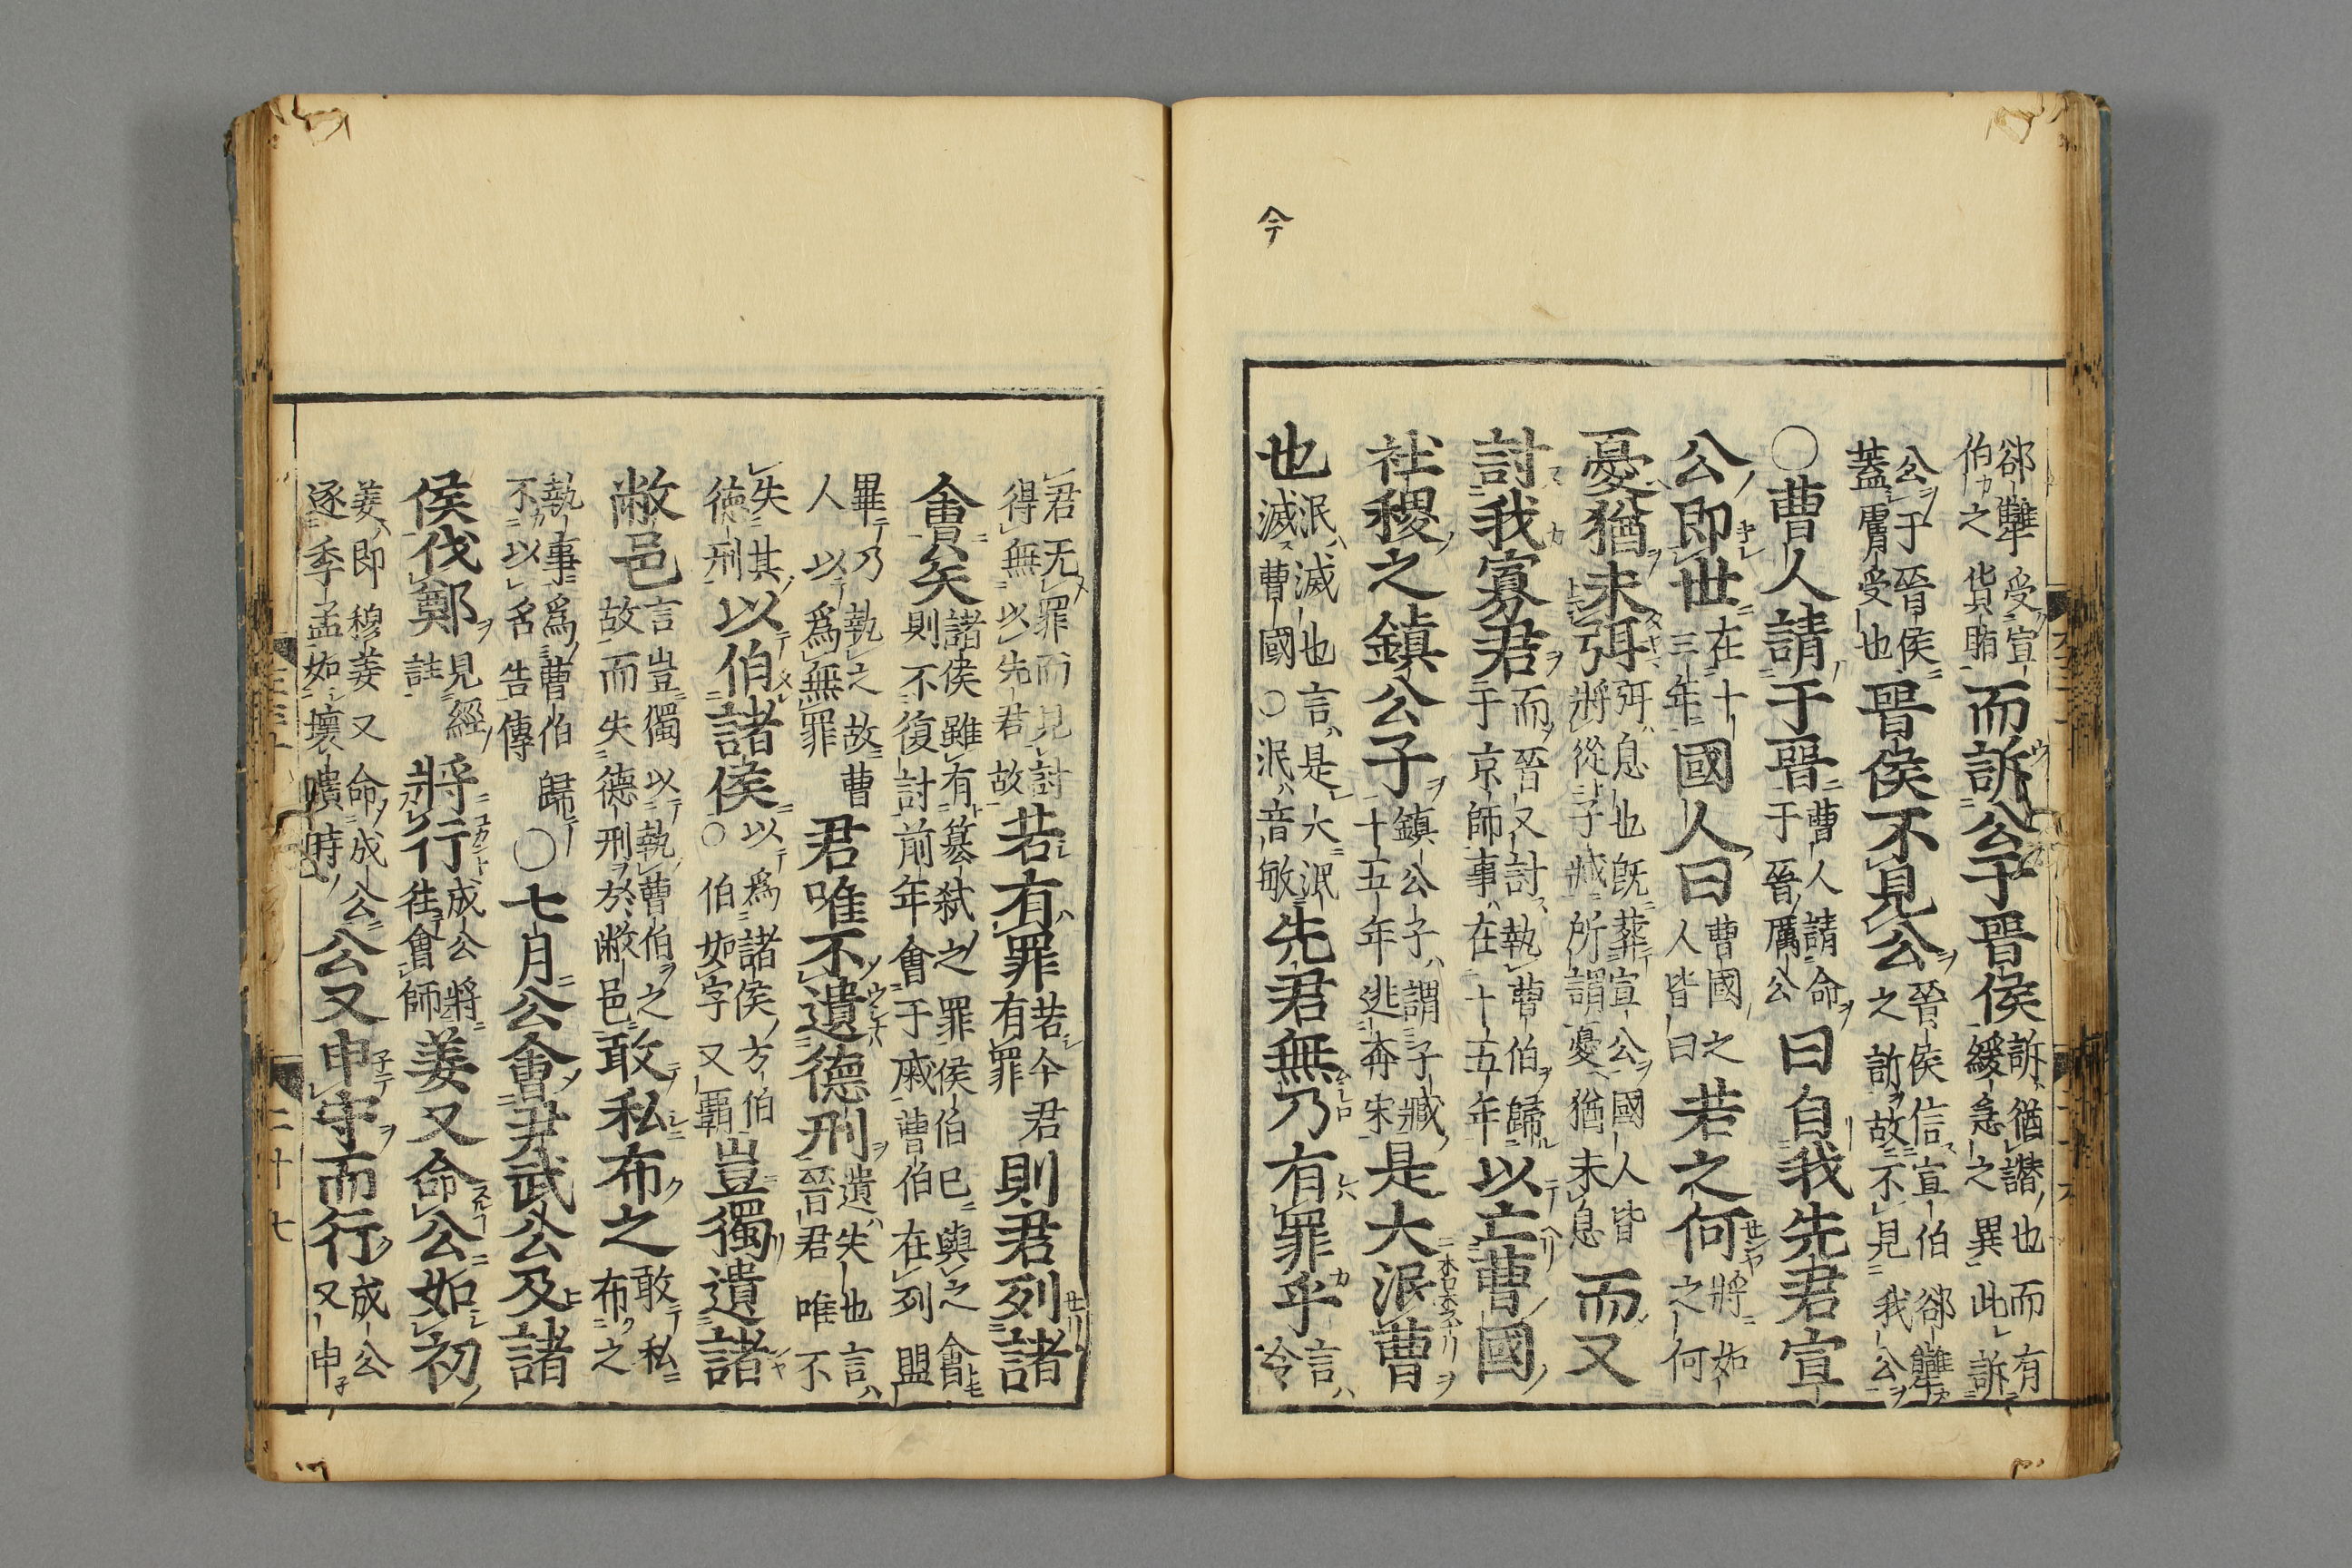 今
郤犨受宣伯之貨賂而訴公子晉侯訴猶譖也而有緩急之異此訴
公于晉侯蓋膚受也晉侯不見公晉侯信宣伯郤犨之訴故不見我公
○曹人請于晉曹人請命于晉厲公曰自我先君宣
公即世在十三年國人曰曹國之人皆曰若之何將如之何
憂猶未弭弭息也既葬宣公國人皆將從子臧所謂憂猶未息而又
討我寡君而晉又討執曹伯歸于京師事在十五年以亡曹國
社稷之鎮公子鎮公子謂子臧十五年逃奔宋是大泯曹
也泯滅也言是大泯滅曹國○泯音敏先君無乃有罪乎言令
君无罪而見討得無以先君故若有罪若今君有罪則君列諸
會矣諸侯雖有篡弑之罪侯伯已與之會則不復討前年會于戚曹伯在列盟
畢乃執之故曹人以爲無罪君唯不遺德刑遺失也言晉君唯不
失其德刑以伯諸侯以爲諸侯方伯○伯如字又霸豈獨遺諸
敝邑言豈獨以執曹伯之故而失德刑於敝邑敢私布之敢私布之
執事爲曹伯歸不以名告傳○七月公會尹武公及諸
侯伐鄭見經註將行成公將往會師姜又命公如初
姜即穆姜又命成公逐季孟如壞隤時公又申守而行成公又申
三十七